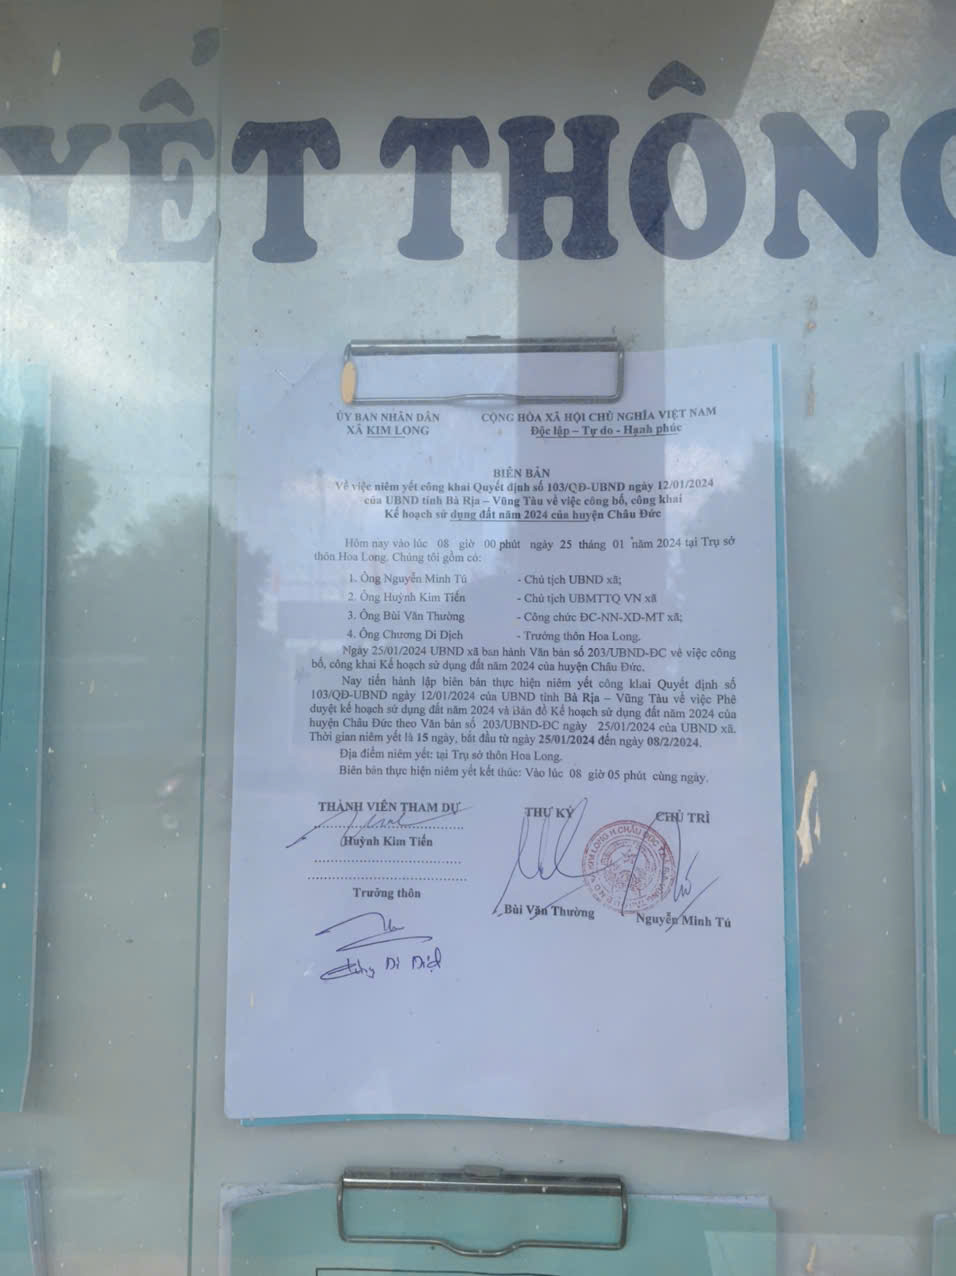 YẾT THÔNG
ỦY BAN NHÂN DÂN
XÃ KIM LONG
CỘNG HÒA XÃ HỘI CHỦ NGHĨA VIỆT NAM
Độc lập – Tự do - Hạnh phúc
BIÊN BẢN
Về việc niêm yết công khai Quyết định số 103/QĐ-UBND ngày 12/01/2024
của UBND tỉnh Bà Rịa – Vũng Tàu về việc công bố, công khai
Kế hoạch sử dụng đất năm 2024 của huyện Châu Đức
Hôm nay vào lúc 08 giờ 00 phút ngày 25 tháng 01 năm 2024 tại Trụ sở
thôn Hoa Long. Chúng tôi gồm có:
1. Ông Nguyễn Minh Tú - Chủ tịch UBND xã;
2. Ông Huỳnh Kim Tiến - Chủ tịch UBMTTQ VN xã
3. Ông Bùi Văn Thường - Công chức ĐC-NN-XD-MT xã;
4. Ông Chương Di Dịch - Trưởng thôn Hoa Long.
Ngày 25/01/2024 UBND xã ban hành Văn bản số 203/UBND-ĐC về việc công
bố, công khai Kế hoạch sử dụng đất năm 2024 của huyện Châu Đức.
Nay tiến hành lập biên bản thực hiện niêm yết công khai Quyết định số
103/QĐ-UBND ngày 12/01/2024 của UBND tỉnh Bà Rịa – Vũng Tàu về việc Phê
duyệt kế hoạch sử dụng đất năm 2024 và Bản đồ Kế hoạch sử dụng đất năm 2024 của
huyện Châu Đức theo Văn bản số 203/UBND-ĐC ngày 25/01/2024 của UBND xã.
Thời gian niêm yết là 15 ngày, bắt đầu từ ngày 25/01/2024 đến ngày 08/2/2024.
Địa điểm niêm yết: tại Trụ sở thôn Hoa Long.
Biên bản thực hiện niêm yết kết thúc: Vào lúc 08 giờ 05 phút cùng ngày.
THÀNH VIÊN THAM DỰ
THƯ KÝ
CHỦ TRÌ
Huỳnh Kim Tiến
Trưởng thôn
Bùi Văn Thường
Nguyễn Minh Tú
Di Dịch